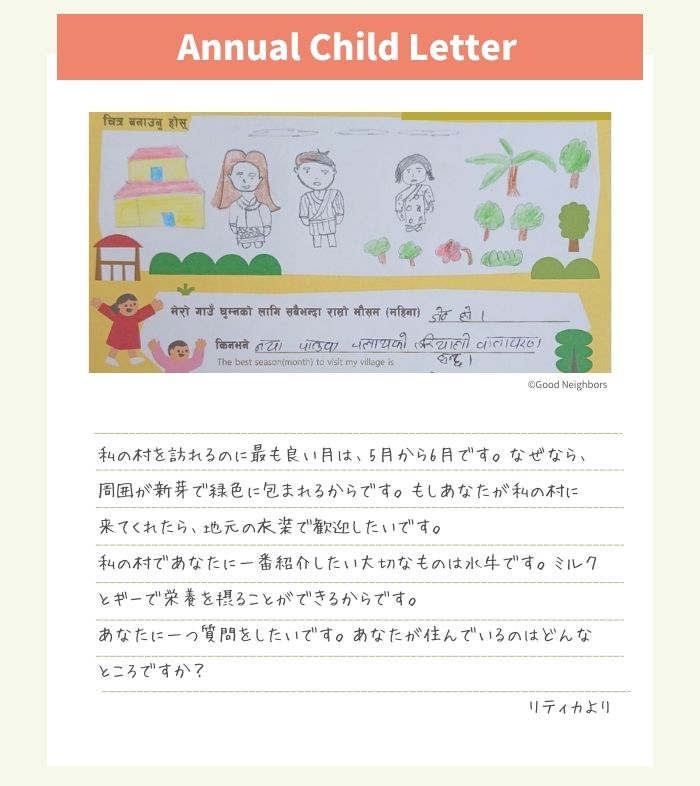 Annual Child Letter
चित्र बनाउनु होस्
मेरो गाउँ घुम्नको लागि सबैभन्दा राम्रो मौसम (महिना) जेठ हो ।
किनभने नयाँ पालुवा पलाएको हरियाली वातावरण
हुन्छ ।
The best season(month) to visit my village is
©Good Neighbors
私の村を訪れるのに最も良い月は、5月から6月です。なぜなら、
周囲が新芽で緑色に包まれるからです。もしあなたが私の村に
来てくれたら、地元の衣装で歓迎したいです。
私の村であなたに一番紹介したい大切なものは水牛です。ミルク
とギーで栄養を摂ることができるからです。
あなたに一つ質問をしたいです。あなたが住んでいるのはどんな
ところですか？
リティカより